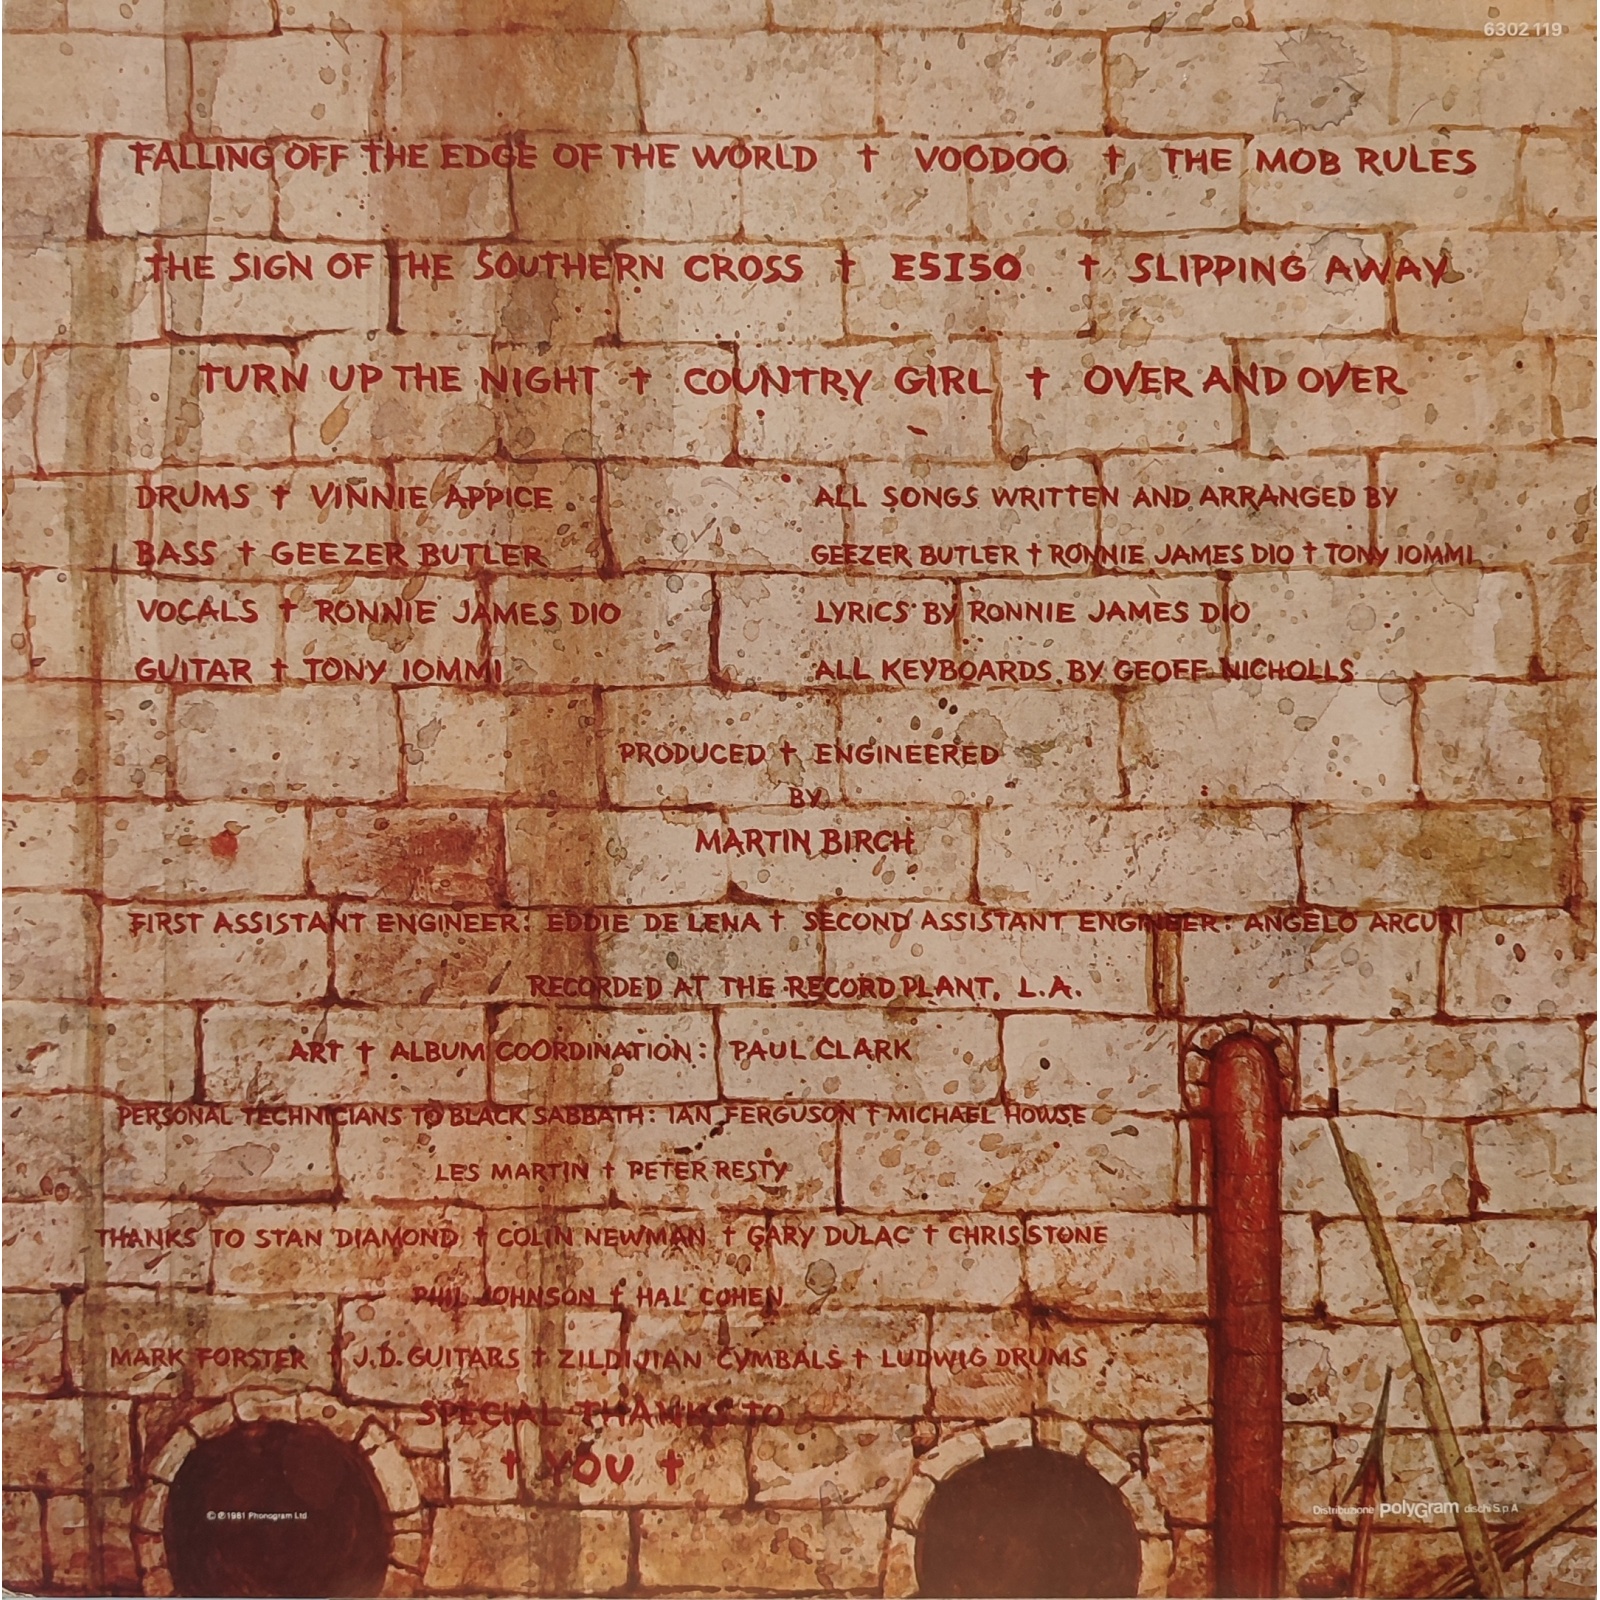 6302 119
FALLING OFF THE EDGE OF THE WORLD † VOODOO † THE MOB RULES
THE SIGN OF THE SOUTHERN CROSS † E5150 † SLIPPING AWAY
TURN UP THE NIGHT † COUNTRY GIRL † OVER AND OVER
DRUMS † VINNIE APPICE
BASS † GEEZER BUTLER
VOCALS † RONNIE JAMES DIO
GUITAR † TONY IOMMI
ALL SONGS WRITTEN AND ARRANGED BY
GEEZER BUTLER † RONNIE JAMES DIO † TONY IOMMI
LYRICS BY RONNIE JAMES DIO
ALL KEYBOARDS BY GEOFF NICHOLLS
PRODUCED † ENGINEERED
BY
MARTIN BIRCH
FIRST ASSISTANT ENGINEER: EDDIE DE LENA † SECOND ASSISTANT ENGINEER: ANGELO ARCURI
RECORDED AT THE RECORD PLANT, L.A.
ART † ALBUM COORDINATION: PAUL CLARK
PERSONAL TECHNICIANS TO BLACK SABBATH: IAN FERGUSON † MICHAEL HOWSE
LES MARTIN † PETER RESTY
THANKS TO STAN DIAMOND † COLIN NEWMAN † GARY DULAC † CHRIS STONE
PHIL JOHNSON † HAL COHEN
MARK FORSTER † J.D. GUITARS † ZILDIJIAN CYMBALS † LUDWIG DRUMS
SPECIAL THANKS TO
† YOU †
© ℗ 1981 Phonogram Ltd
Distribuzione PolyGram dischi S.p.A